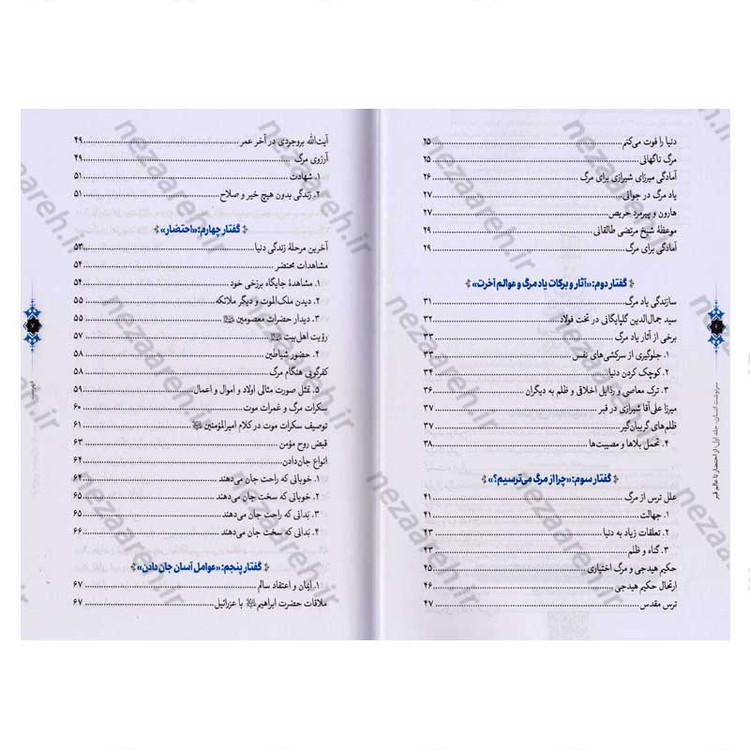 دنیا را فوت می‌کنم ۲۵
مرگ ناگهانی ۲۵
آمادگی میرزای شیرازی برای مرگ ۲۶
یاد مرگ در جوانی ۲۷
هارون و پیرمرد حریص ۲۷
موعظهٔ شیخ مرتضی طالقانی ۲۹
آمادگی برای مرگ ۲۹
گفتار دوم: «آثار و برکات یاد مرگ و عوالم آخرت»
سازندگی یاد مرگ ۳۱
سید جمال‌الدین گلپایگانی در تخت فولاد ۳۲
برخی از آثار یاد مرگ ۳۳
۱. جلوگیری از سرکشی‌های نفس ۳۳
۲. کوچک کردن دنیا ۳۴
۳. ترک معاصی و رذایل اخلاقی و ظلم به دیگران ۳۶
میرزا علی‌آقا شیرازی در قبر
ظلم‌های گریبان‌گیر
۴. تحمل بلاها و مصیبت‌ها ۳۸
گفتار سوم: «چرا از مرگ می‌ترسیم؟»
علل ترس از مرگ ۴۱
۱. جهالت ۴۱
۲. تعلقات زیاد به دنیا ۴۳
۳. گناه و ظلم ۴۳
حکیم هیدجی و مرگ اختیاری ۴۵
ارتحال حکیم هیدجی ۴۶
ترس مقدس ۴۷
سرنوشت انسان، جلد اول: از احتضار تا عالم قبر
آیت‌الله بروجردی در آخر عمر ۴۹
آرزوی مرگ ۴۹
۱. شهادت ۵۱
۲. زندگی بدون هیچ خیر و صلاح ۵۱
گفتار چهارم: «احتضار»
آخرین مرحلهٔ زندگی دنیا ۵۳
مشاهدات محتضر ۵۴
۱. مشاهدهٔ جایگاه برزخی خود ۵۴
۲. دیدن ملک‌الموت و دیگر ملائکه ۵۵
۳. دیدار حضرات معصومین ۵۶
رؤیت اهل‌بیت ۵۷
۴. حضور شیاطین ۵۸
کفرگویی هنگام مرگ ۵۸
۵. تمثل صورت مثالی اولاد و اموال و اعمال ۵۹
سکرات مرگ و غمرات موت ۶۰
توصیف سکرات موت در کلام امیرالمؤمنین ۶۱
قبض روح مؤمن ۶۳
انواع جان‌دادن ۶۴
۱. خوبانی که راحت جان می‌دهند ۶۴
۲. خوبانی که سخت جان می‌دهند ۶۵
۳. بدانی که راحت جان می‌دهند ۶۵
۴. بدانی که سخت جان می‌دهند ۶۶
گفتار پنجم: «عوامل آسان جان دادن»
۱. ایمان و اعتقاد سالم ۶۷
ملاقات حضرت ابراهیم با عزرائیل ۶۷
۷
nezaareh.ir